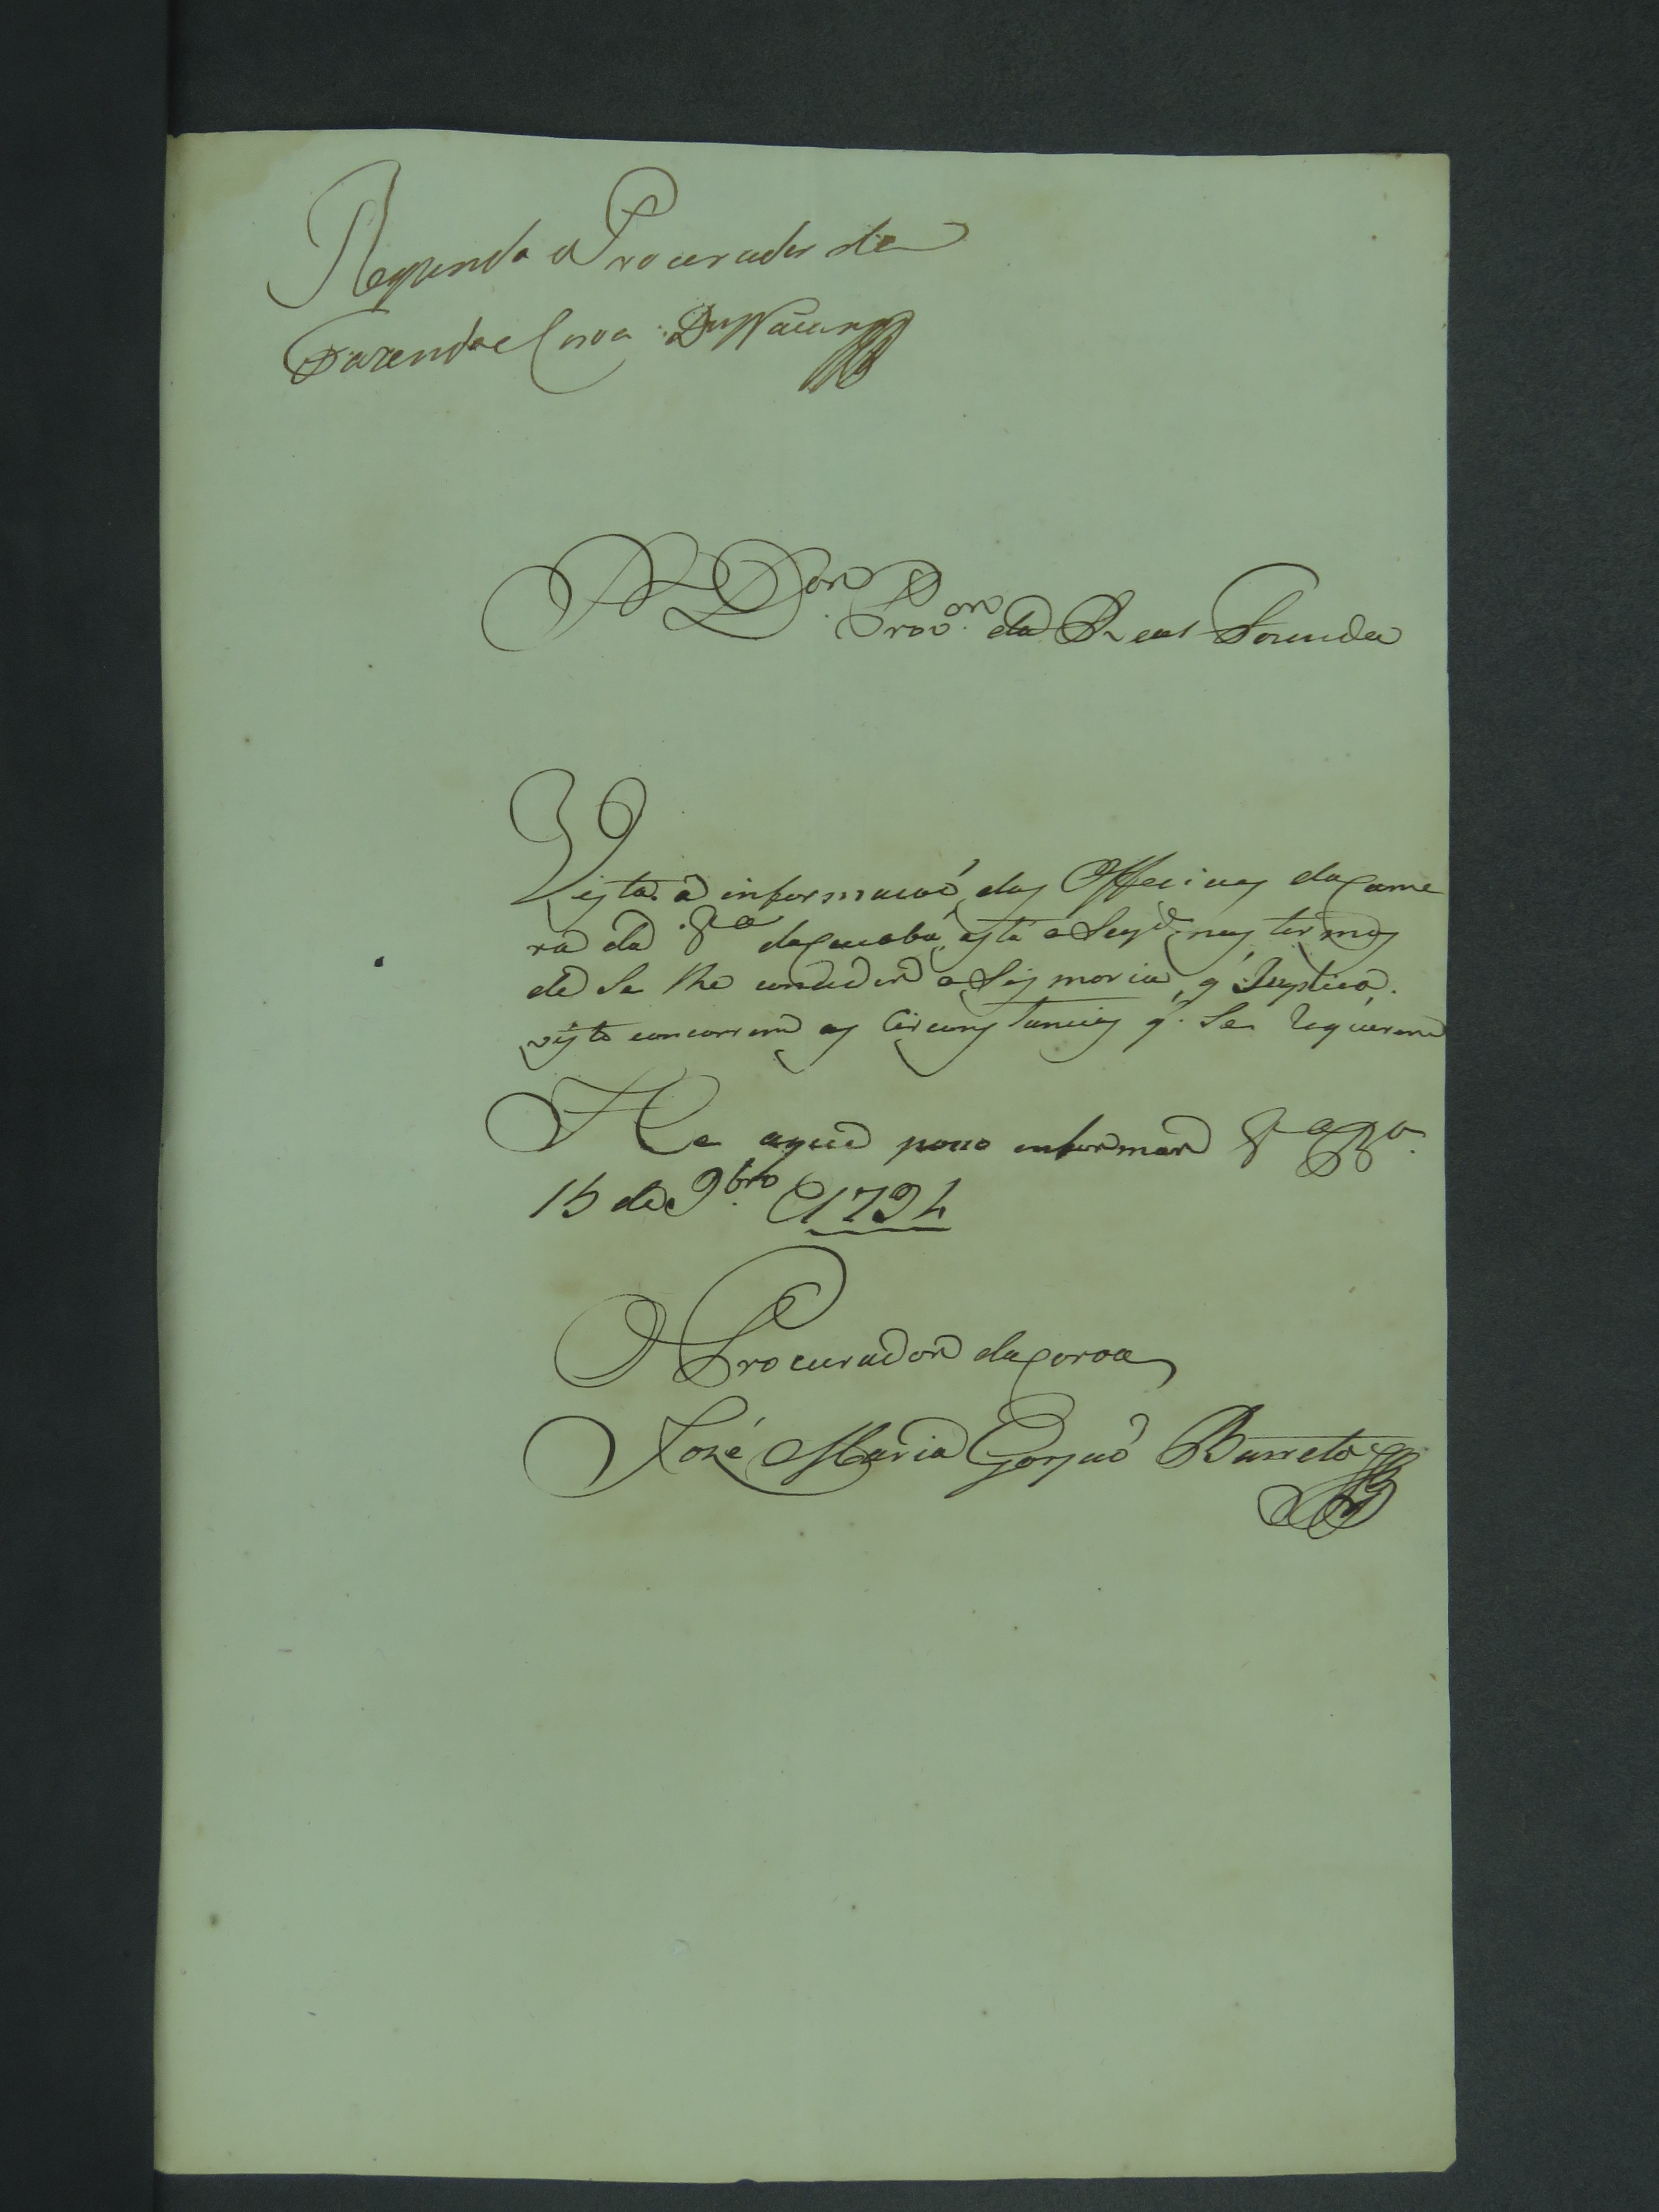 Responda o Procurador da
Fazenda e Coroa
Snr. Dor. Provor. da Real Fazenda
Vista a informacaó dos Offeciaes da Came
ra da Va. da Cuaba, está a Supe. nos termos
de Se lhe conceder a Sismoria, q' Suplica.
visto concorrem as Circunstancias q'. Se Requerem
He o que posso informar Va. Ba.
15 de 9bro. 1794
O Procurador da Coroa
José Maria Gorjaó Barreto